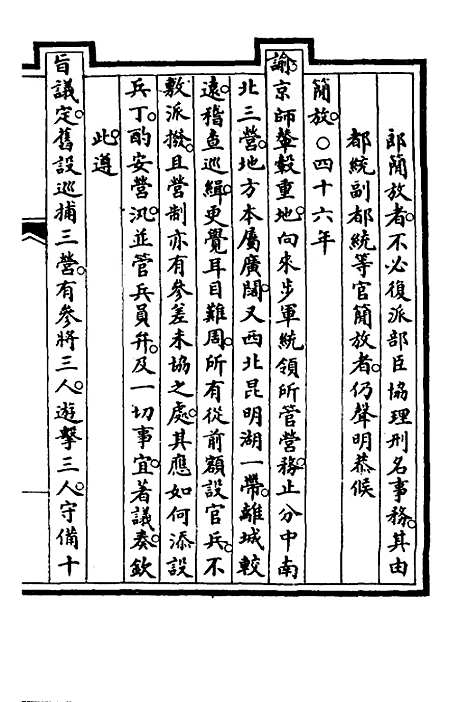 郎簡放者。不必復派部臣協理刑名事務。其由
都統副都統等官簡放者。仍聲明恭候
簡放。○四十六年
諭京師輦轂重地。向來步軍統領所管營務。止分中南
北三營。地方本屬廣闊。又西北昆明湖一帶。離城較
遠。稽查巡緝。更覺耳目難周。所有從前額設官兵。不
敷派撥。且營制亦有參差未協之處。其應如何添設
兵丁。酌安營汛。並管兵員弁。及一切事宜。著議奏。欽
此。遵
旨議定。舊設巡捕三營。有參將三人。遊擊三人。守備十